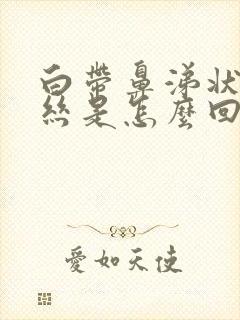 白帶鼻涕狀
絲是怎麼回
愛如天使